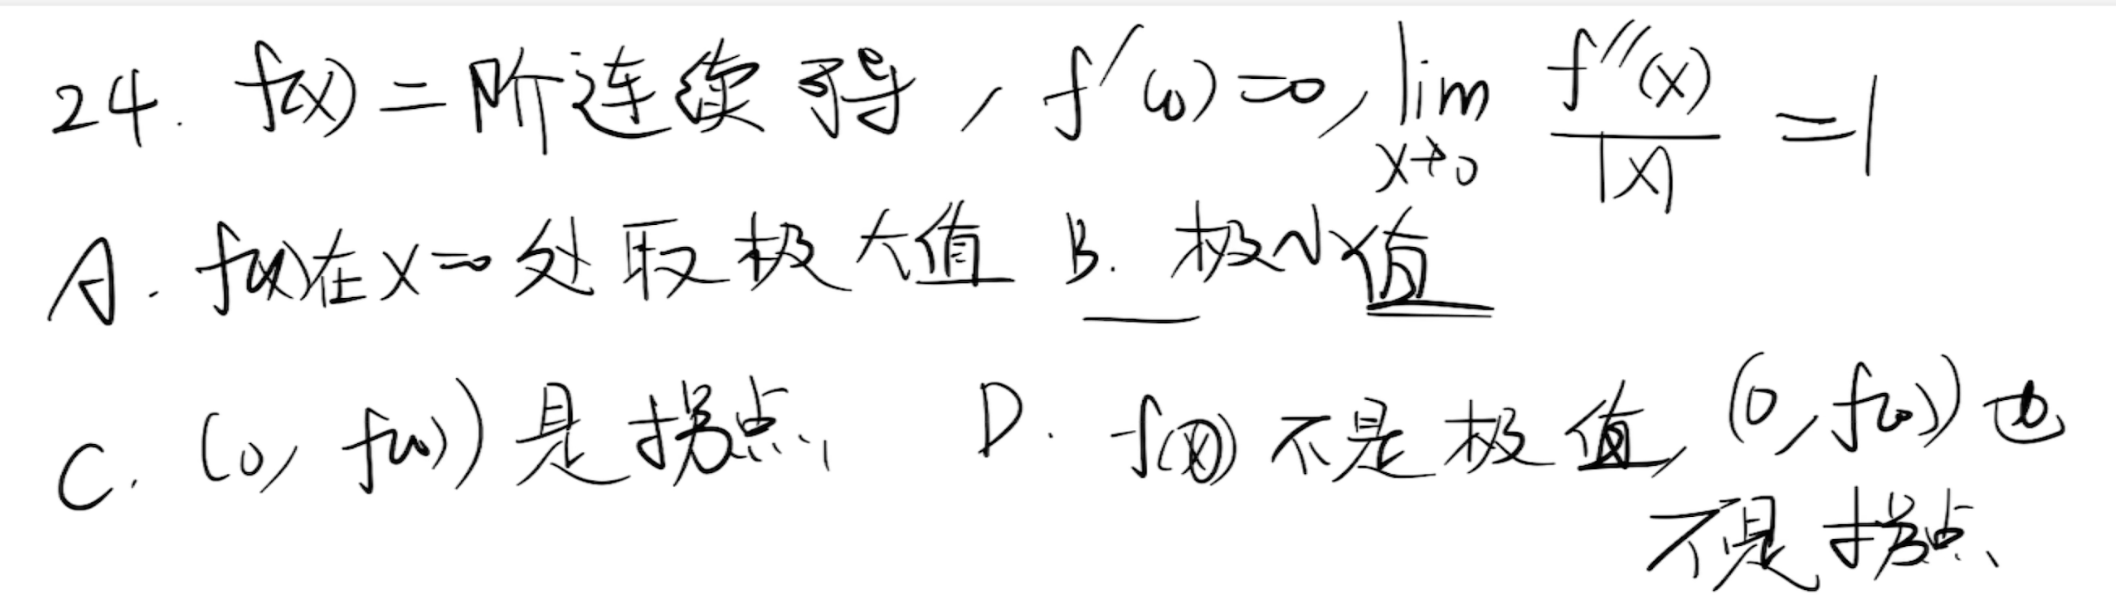 24. f(x)二阶连续可导, f′(0)=0, lim x→0 f″(x)/|x| =1
A. f(x)在x=0处取极大值 B. 极小值
C. (0, f(0))是拐点 D. f(0)不是极值, (0, f(0))也
不是拐点